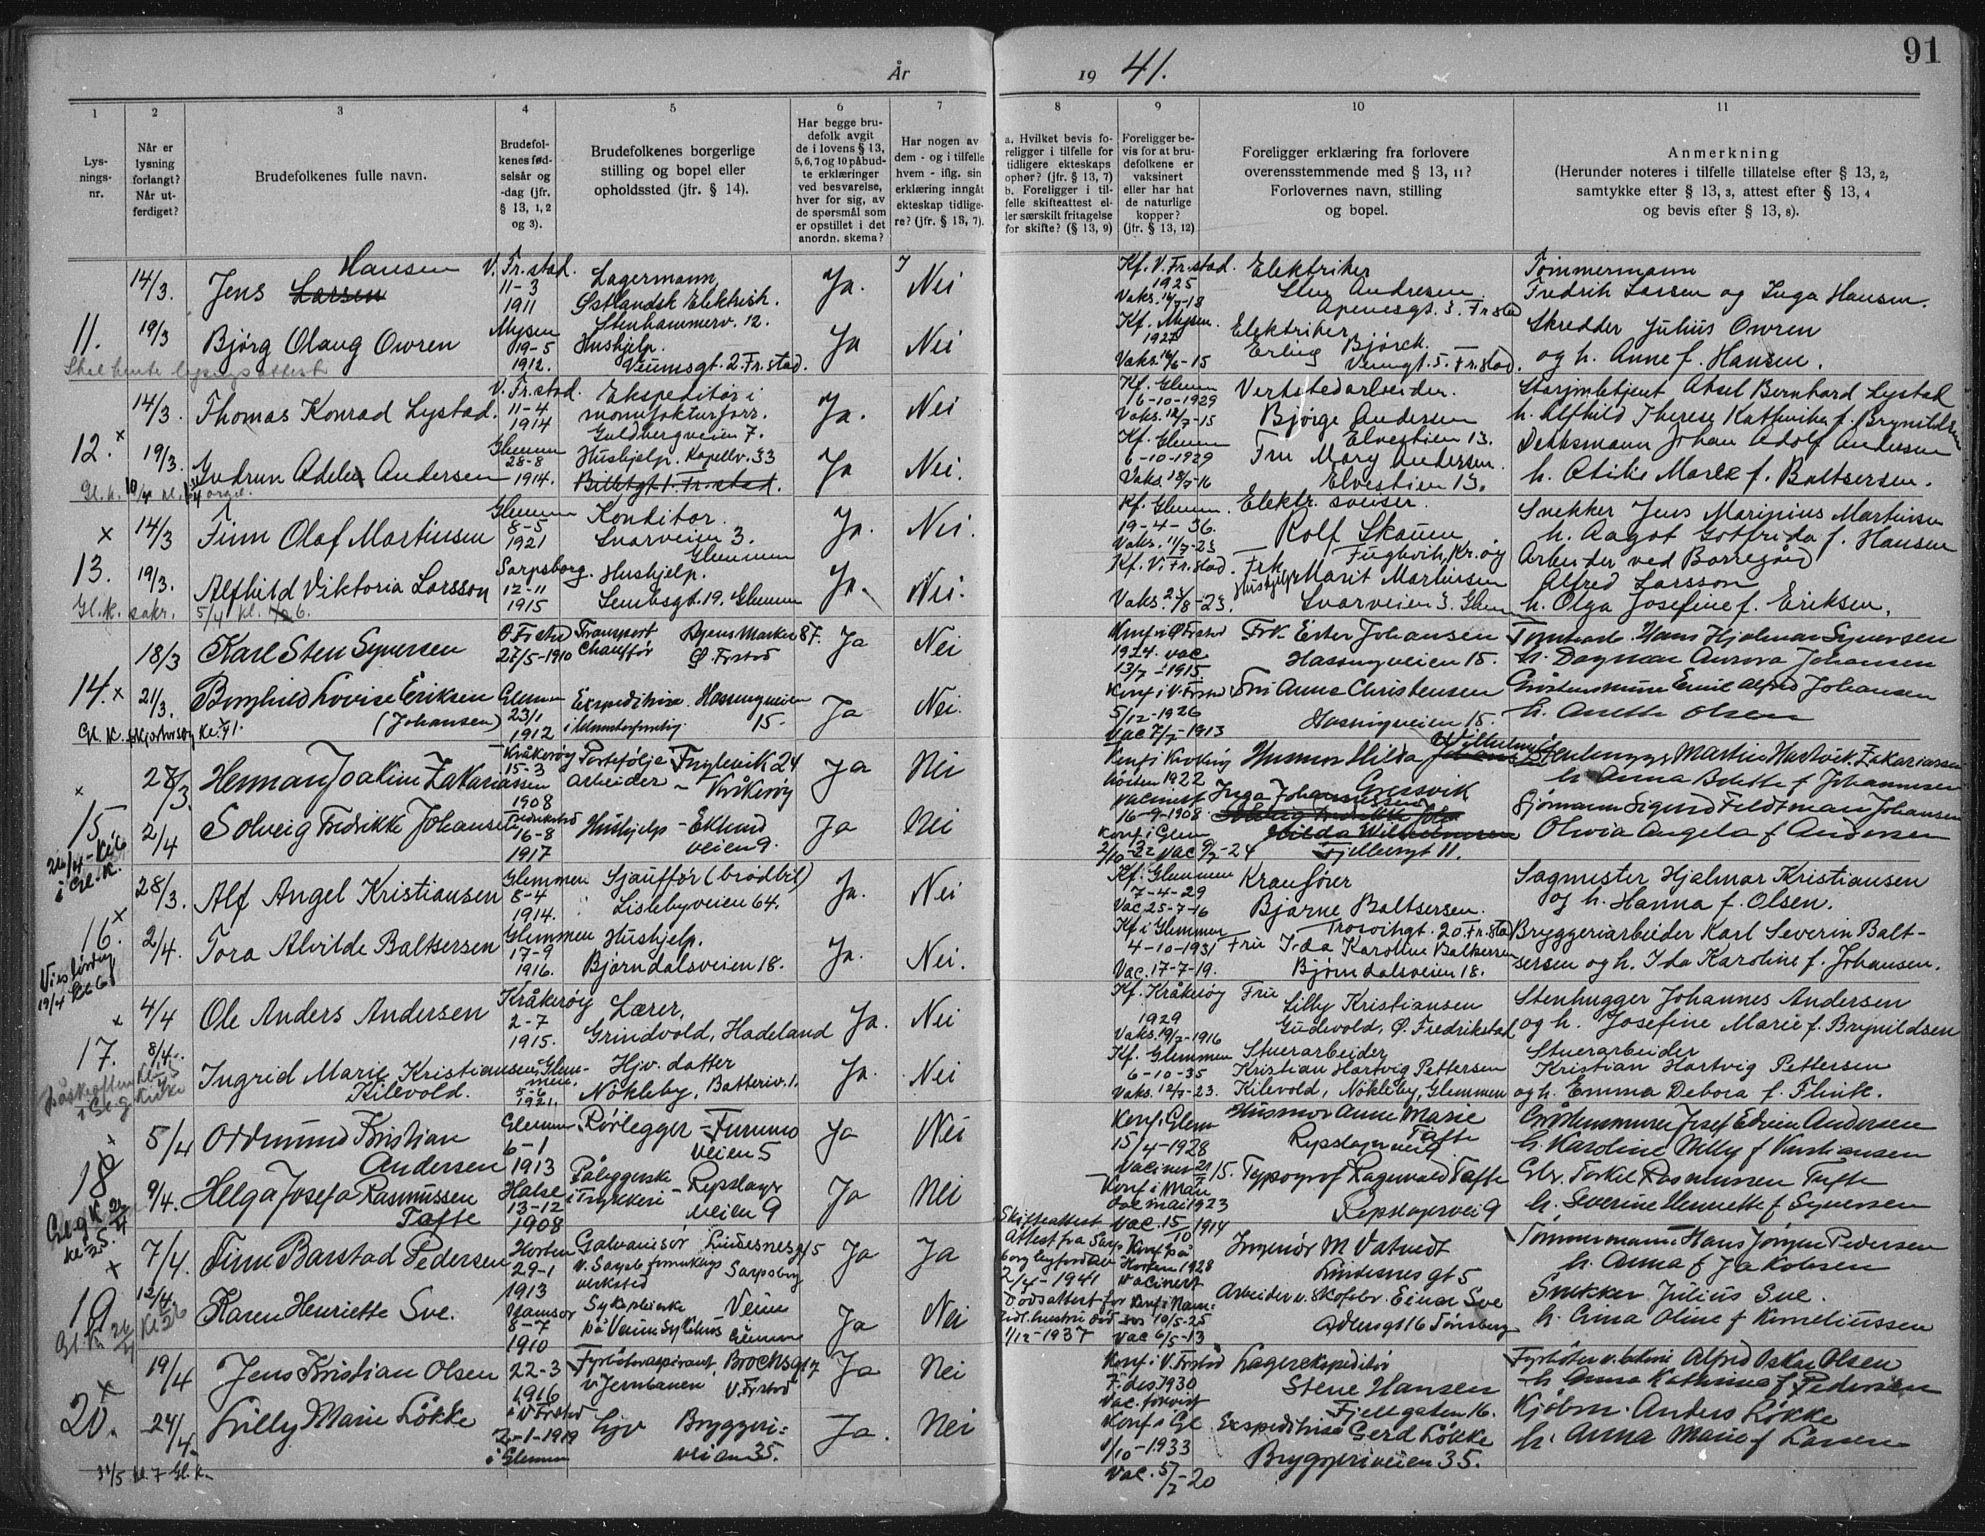 91
År
19 41.
1
2
3
4
5
6
7
8
9
10
11
Lys-
nings-
nr.
Når er
lysning
forlangt?
Når ut-
ferdiget?
Brudefolkenes fulle navn.
Brudefol-
kenes fød-
selsår og
-dag (jfr.
§ 13, 1, 2
og 3).
Brudefolkenes borgerlige
stilling og bopel eller
opholdssted (jfr. § 14).
Har begge bru-
defolk avgit
de i lovens § 13,
5, 6, 7 og 10 påbud-
te erklæringer
ved besvarelse,
hver for sig, av
de spørsmål som
er opstillet i det
anordn. skema?
Har nogen av
dem - og i tilfelle
hvem - iflg. sin
erklæring inngåt
ekteskap tidlige-
re? (jfr. § 13, 7).
a. Hvilket bevis fo-
religger i tilfelle for
tidligere ekteskaps
ophør? (jfr. § 13, 7)
b. Foreligger i til-
felle skifteattest el-
ler særskilt fritagelse
for skifte? (§ 13, 9)
Foreligger be-
vis for at bru-
defolkene er
vaksinert
eller har hat
de naturlige
kopper?
(jfr. § 13, 12)
Foreligger erklæring fra forlovere
overensstemmende med § 13, 11?
Forlovernes navn, stilling
og bopel.
Anmerkning
(Herunder noteres i tilfelle tillatelse efter § 13, 2,
samtykke efter § 13, 3, attest efter § 13, 4
og bevis efter § 13, 8).
11.
14/3.
Jens Larsen Hansen
V. Fr.stad.
11-3
1911
Lagermann
Østlandsk Elektrisk.
Stenhammerv. 12.
Ja.
Nei
Kf. V. Fr.stad.
1925
Elektriker
Andresen
Apenesgt. 3. Fr.stad
Tømmermann
Fredrik Larsen og Inga Hansen.
19/3
Bjørg Olaug Owren
Mysen
19-5
1912.
Hushjelp.
Veumsgt. 2. Fr.stad.
Ja
Nei
Kf. Mysen.
1927
Vaks. 16/6-15
Elektriker
Erling Bjørck.
Veumgt. 5. Fr.stad.
Skredder Julius Owren
og h. Anne f. Hansen.
Skal hente lysningsattest
12.
14/3.
Thomas Konrad Lystad.
V. Fr.stad.
11-4
1914
Ekspeditør i
manufakturforr.
Guldbergveien 7.
Ja.
Nei
Kf. Glemm
6-10-1929
Vaks. 12/7-15
Verkstedarbeider.
Børge Andersen
Elvestien 13.
Aksel Bernhard Lystad
h. Alfhild Therese Kathinka f. Brynildsen
19/3.
Gudrun Adele Andersen
Glemm
28-8
1914.
Hushjelp. Kapellv. 33
Ja
Nei.
Kf. Glemm
6-10-1929
Fru Mary Andersen.
Elvestien 13.
Dekksmann Johan Adolf Andersen
h. Otilie Marek f. Baltsersen.
13.
14/3
Finn Olaf Martinsen
Glemm
8-5
1921
Konditor.
Svarveien 3.
Glemmen
Ja.
Nei.
Kf. Glemm.
19-4-36.
Vaks. 11/7-23
Elektr. sveiser
Rolf Skauen
Fuglevik, Kr.øy
Snekker Jens Marinius Martinsen
h. Aagot Gotfrida f. Hansen
19/3.
Alfhild Viktoria Larsson
Sarpsborg.
12-11
1915
Hushjelp.
Lembsgt. 19. Glemm
Ja.
Nei.
Kf. V. Fr.stad.
Frk. Marit Martinsen
Hushjelp
Svarveien 3. Glem
Arbeider ved Borregård
Alfred Larsson
h. Olga Josefine f. Eriksen.
Gl.k. sakr. 5/4 kl. 6.
14.
18/3
Karl Sten Syversen
Ø. Frstad
27/5-1910
Transport
Chauffør
Ryens Marken 87.
Ø. Frstad
Ja
Nei
Konf i Ø Frstad
1924. vac
13/7-1915
Frk Ester Johansen
Hassingveien 15.
Tømherb. Hans Hjalmar Syversen
h. Dagmar Aurora Johansen
21/3.
Borghild Lovise Eriksen
(Johansen)
Glemm
23/1
1912
Expeditrise Hassingveien
15.
Ja
Nei.
Konf i V. Frstad
5/12-1926
Vac 7/7-1913
Fru Anna Christensen
Hassingveien 15.
Emil Alfred Johansen
h. Anette Olsen
15
28/3.
Herman Joakim Zakariassen
Kråkerøy
15-3
1908
Portefølje
arbeider
Fuglevik 24
Kråkerøy
Ja
Nei
Husmor Hilda Wilhelmsen
Gressvik
Stenhugger Martin Hartvik Zakariassen
h. Anna Bolette f Johannesen
2/4
Solveig Fredrikke Johansen
Fredrikstad
16-8
1917
Hushjelp - Eklund
veien 9.
Ja
Nei
Inga Johannessen
Fjellbergt 11.
Sjømann Sigurd Feldtman Johansen
Olivia Angela f Andersen
16.
28/3.
Alf Angel Kristiansen
Glemmen
8-4
1914.
Sjauffør (brødbil)
Lislebyveien 64.
Ja.
Nei
Kf. Glemmen
7-4-29
Vac 25-7-16
Kranfører
Bjarne Baltsersen.
Trosvikgt. 20. Fr.stad
Sagmester Hjalmar Kristiansen
og h. Hanna f. Olsen.
2/4.
Tora Alvilde Baltsersen
Glemmen
17-9
1916.
Hushjelp.
Bjørndalsveien 18.
Ja.
Nei.
Kf i Glemmen
4-10-1931
Vac. 17-7-19.
Fru Ida Karoline Baltsersen
Bjørndalsveien 18.
Bryggeriarbeider Karl Severin Balt-
sersen og h. Ida Karoline f. Johansen.
17.
4/4
Ole Anders Andersen
Kråkerøy
2-7
1915.
Lærer,
Grindvold, Hadeland
Ja.
Nei
Kf. Kråkerøy
1929
Vaks. 19/7-1916
Fru Lilly Kristiansen
Gudevold, Ø. Fredrikstad
Stenhugger Johannes Andersen
og h. Josefine Marie f. Brynildsen
8/4.
Ingrid Marie Kristiansen
Kilevold.
Glem-
men.
5-6
1921.
Hjv. datter
Nøkleby, Batteriv. 1.
Ja.
Nei
Kf. Glemmen
6-10-35
Vaks. 12/7-23.
Stuerarbeider
Kristian Hartvig Pettersen
Kilevold, Nøkleby, Glemmen
Stuerarbeider
Kristian Hartvig Pettersen
og h. Emma Debora f. Flink.
18
5/4
Ordmund Kristian
Andersen
Glemm.
6-1
1913
Rørlegger - Furumo
veien 5
Ja
Nei
Konf. i Glem
15/4-1928
Husmor Anne Marie
Tafte
Repslagerveien 9
Gråstensmurer Josef Edvin Andersen
h. Karoline Milly f Kristiansen
9/4.
Helga Josefa Rasmussen
Tafte
Halse
13-12
1908
Påleggerske
i Trykkeri - Repslager
veien 9
Ja
Nei
Vac. 15/10 1914
Typograf Ragnvald Tafte
Repslagervei 9
Gbr. Torkel Rasmussen Tafte
h. Severine Henriette f Syversen
19
7/4.
Finn Barstad Pedersen
Horten
29-1
1913
Galvanisør
Lindesnesgt 5
Sarpsborg
Ja
Ja
Skifteattest
Attest fra Sarps
borg byfordeb
2/4-1941
Dødsattest for
tidl. hustru død
1/12-1937
Konf på
Horten 1928
vacinert
Ingeniør M Vatvedt
Lindesnesgt 5
Tømmermann Hans Jørgen Pedersen
h. Anna f Jakobsen
12/4
Karen Henriette Sve.
Namsos
8-7
1910
Sykepleierke
på Veum Sykhus
Veum
Glemm
Ja
Nei
Konf i Nam-
sos 10/5-25
Vac 6/5-13
Arbeider v. Skofabr. Einar Sve
Adlersgt 16 Tønsberg
Snekker Julius Sve.
h. Erna Oline f Korneliussen
20.
19/4
Jens Kristian Olsen
22-3
1916
i V Frstad
Fyrbøteraspirant
v Jernbanen
Brochsgt 7
V. Frstad
Ja
Nei
Konf i V. Frstad
7 des 1930
Lagerekspeditør
Stene Hansen
Fjellgaten 16.
Alfred Oskar Olsen
h Anna Kathrine f Pedersen
24/4.
Lilly Marie Løkke
2-1-1919
i Glemm
Hjv Bryggeri-
veien 35.
Ja.
Nei
Konf i Gl
1/10-1933
Vac. 5/7-20
Expeditrise Gerd Løkke
Bryggeriveien 35.
Kjøbm. Anders Løkke
h. Anna Marie f Larsen
31/5 kl. 7 Gl.k.